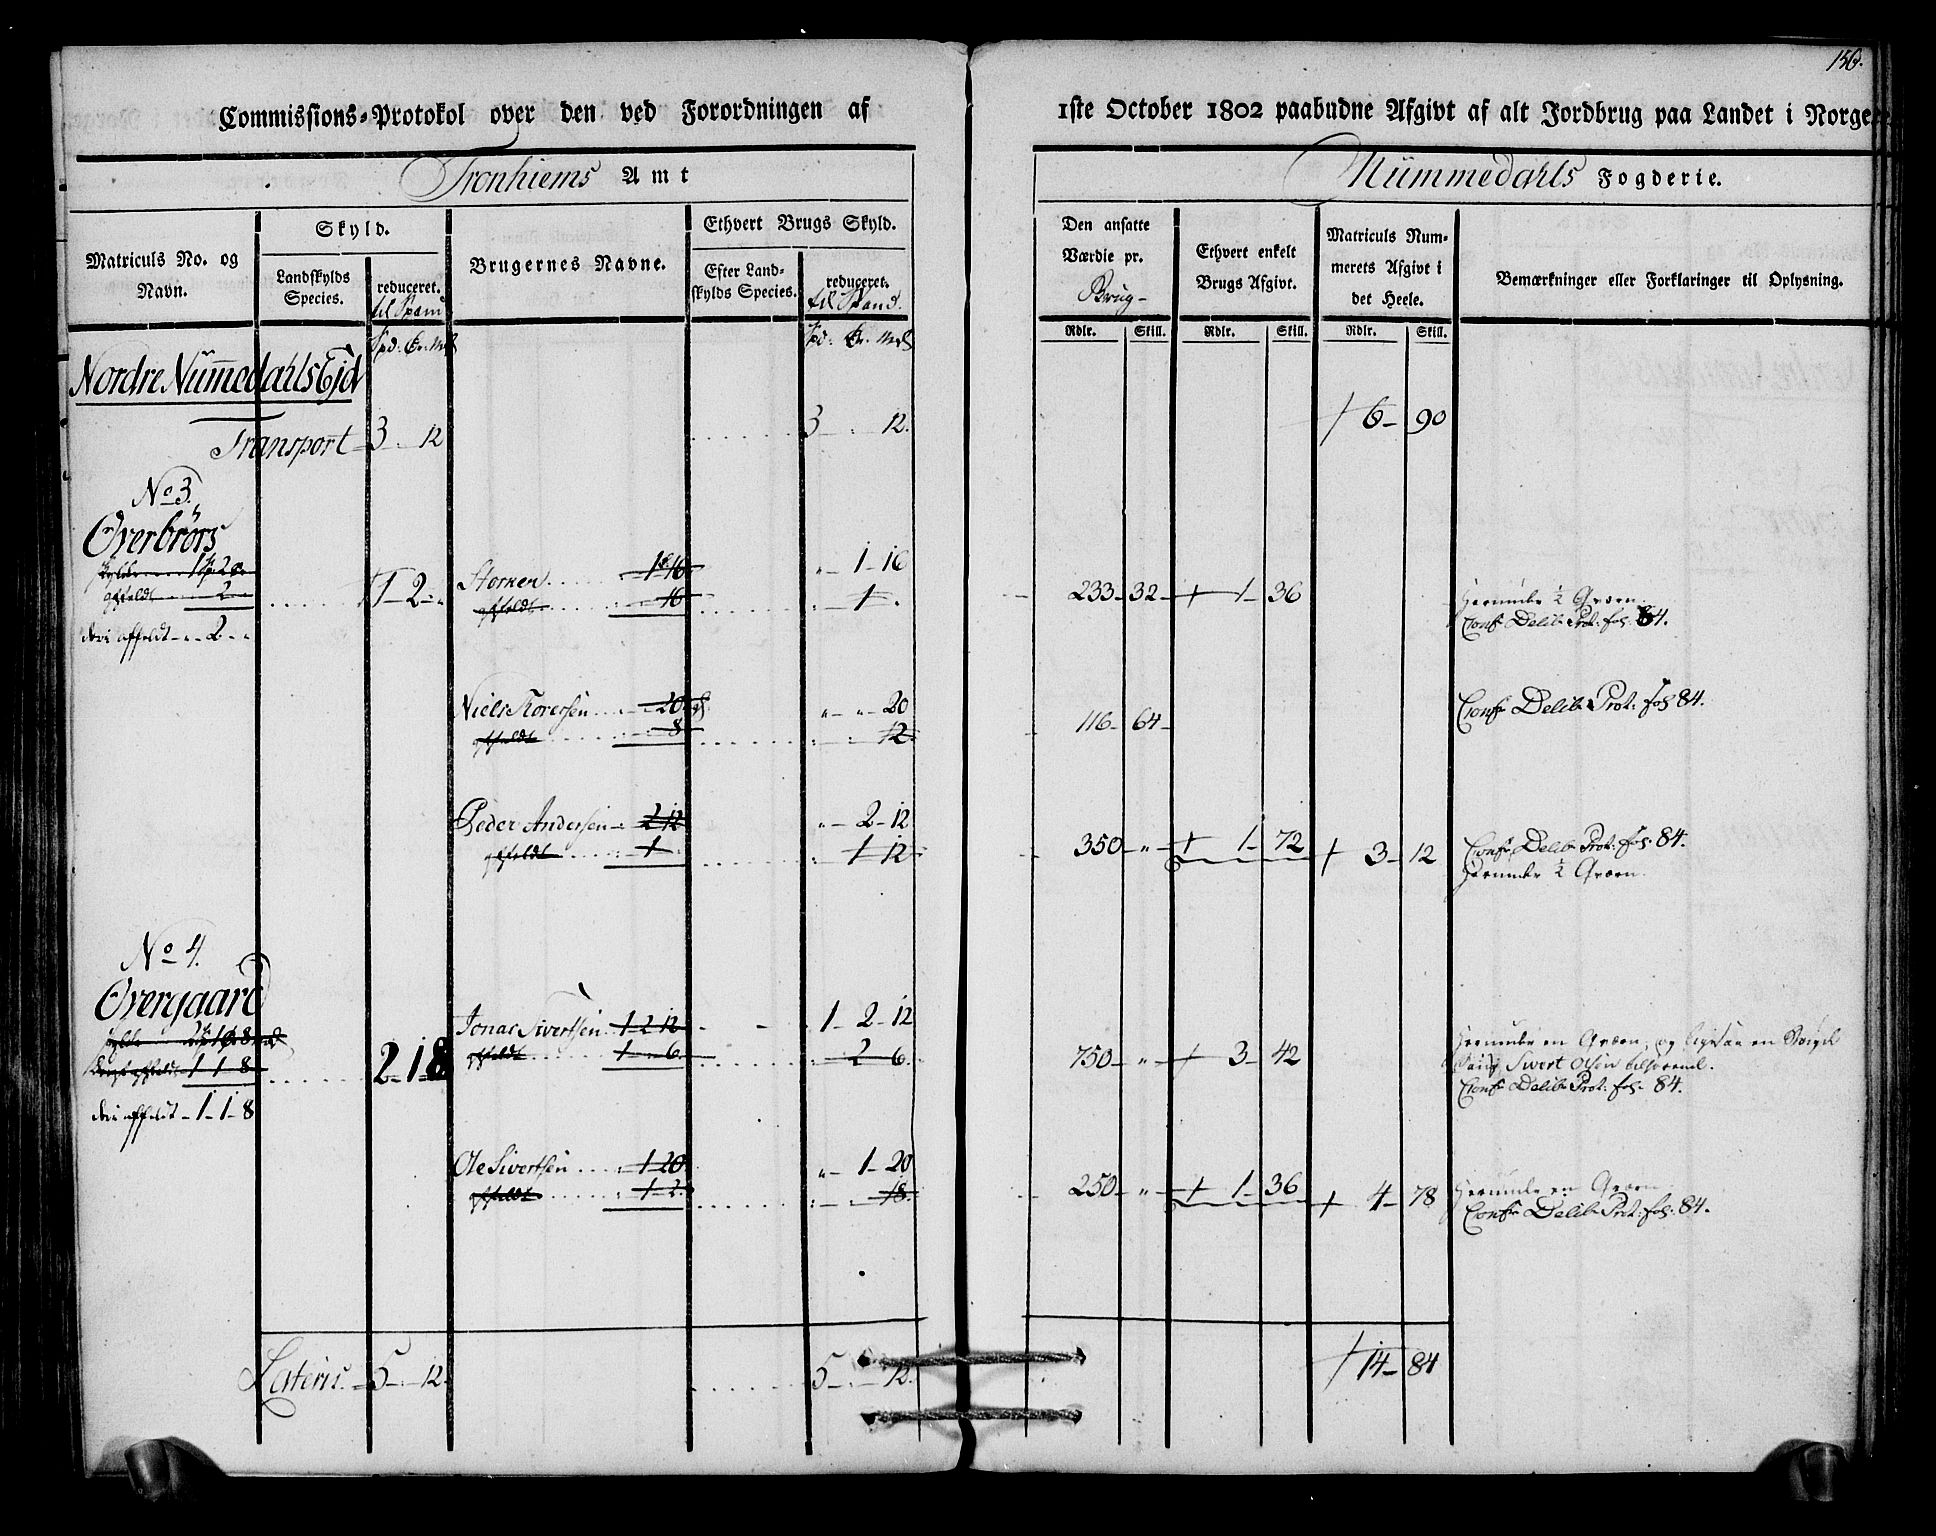 156.
Commissions-Protokol over den ved Forordningen af 1ste October 1802 paabudne Afgivt af alt Jordbrug paa Landet i Norge
Tronhiems Amt
Nummedahls Fogderie.
Matriculs No. og Navn.
Skyld.
Landskylds Species.
reduceret.
til Spand
Brugernes Navne.
Ethvert Brugs Skyld.
Efter Landskylds Species.
reduceret.
til Spand.
Den ansatte Værdie pr.
Brug-
Ethvert enkelt Brugs Afgivt.
Matriculs Nummerets Afgivt i det Heele.
Bemærkninger eller Forklaringer til Oplysning.
Rdlr. Skill. Rdlr. Skill. Rdlr. Skill.
Nordre Nummedahls Gjd
Transport 3 " 12 3 " 12. 6 90
No 3.
Overbrørs
deri affeldt " 2 "
1 2 "
Storken 1 16 " 1 16
affeldt 16 " 1 "
233 32 1 36
Herunder ½ Qværn.
Conf. Delib. Prot. fol. 84.
Niels 20 " " 20
affeldt 8 " 12
116 64
Conf. Delib. Prot. fol. 84.
Peder Andersen 2 12 " 2 12
affeldt 1 " 1 12
350 " 1 72 3 12
Conf. Delib. Prot. fol. 84.
Herunder ½ Qværn.
No 4.
Overgaard
deri affeldt 1 1 8
2 1 8
Jonas Sivertsen 1 2 12 1 2 12
affeldt 1 " 6 2 6
750 " 3 42
Herunder en Qværn, og
Sivert Olsen tilhørende.
Conf. Delib. Prot. fol. 84.
Ole Sivertsen 1 20 " 1 20
affeldt 1 2 " 18
250 " 1 36 4 78
Herunder en Qværn
Conf. Delib. Prot. fol. 84.
Lateris 5 " 12. 5 " 12. 14 84